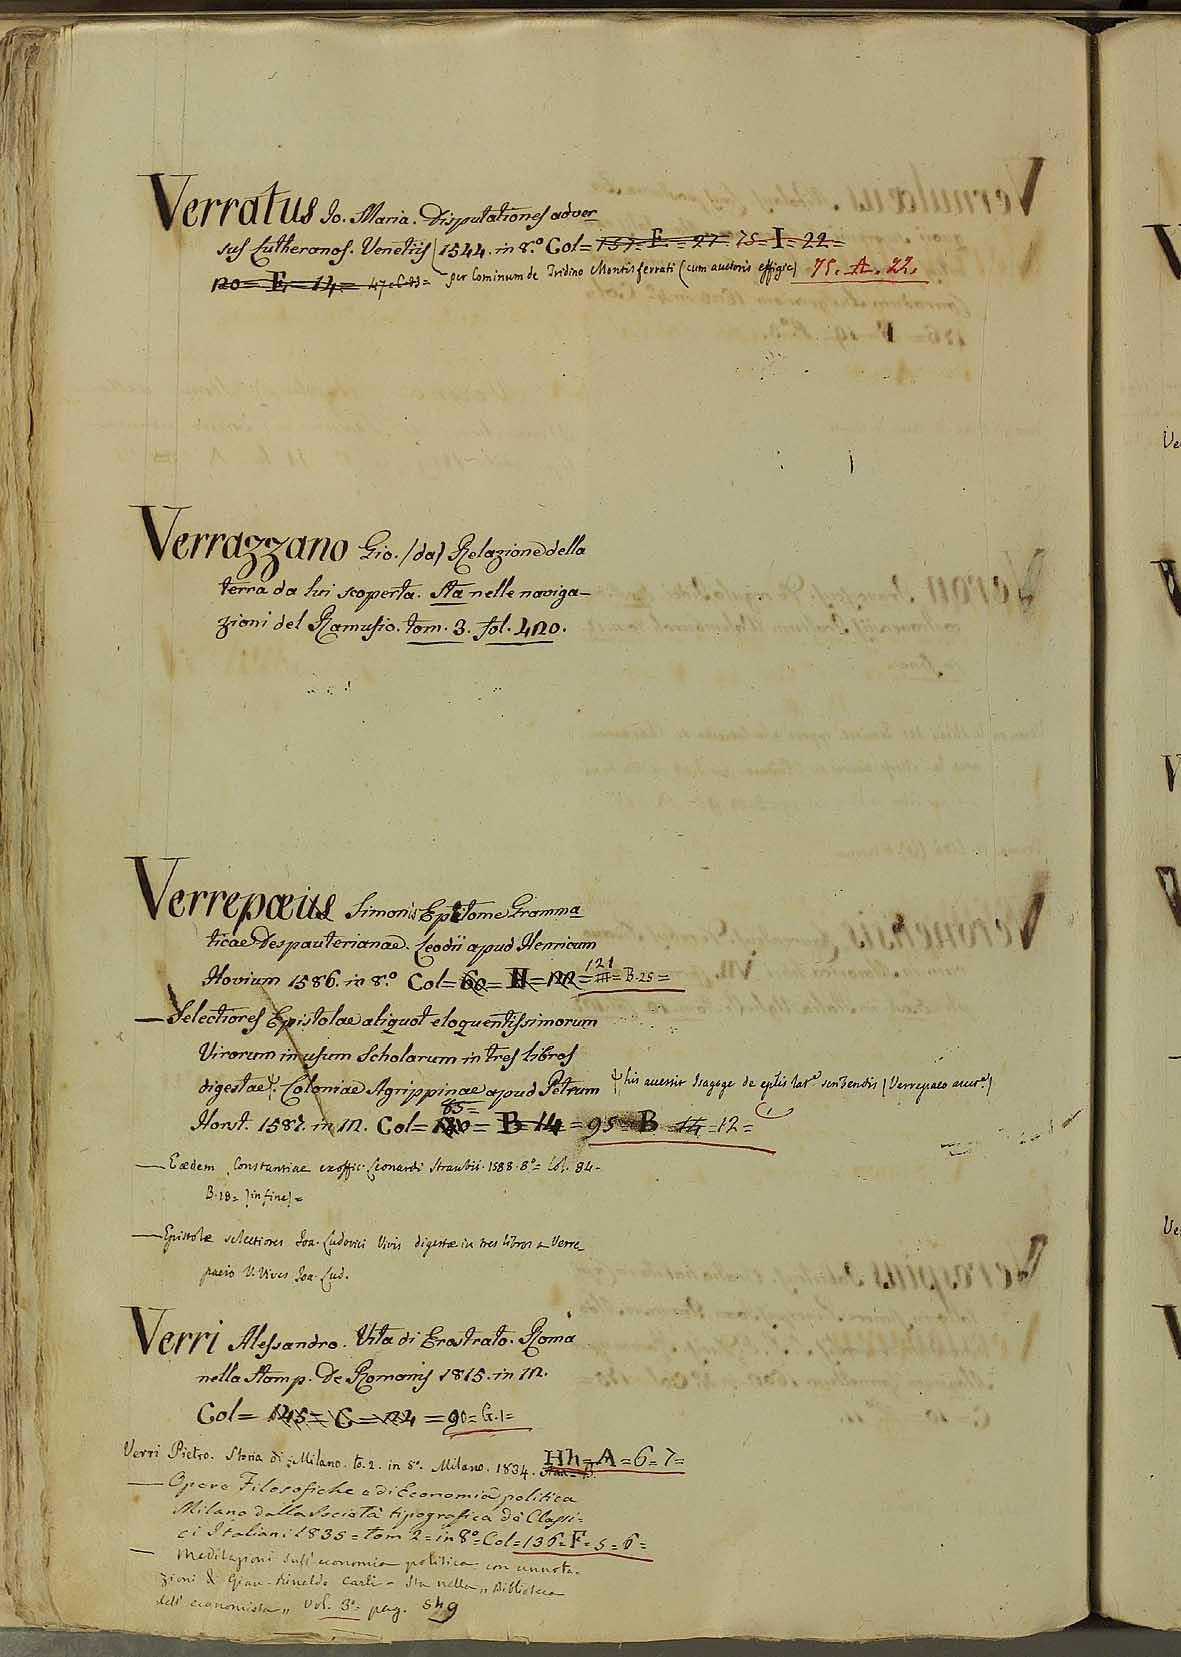 Verratus Io. Maria. Disputationes adver
sus Lutheranos. Venetiis / 1544. in 8.º Col= 151= F. = 27 75= I= 22=
120= E, = 14= 47= C. 83= per Cominum de Tridino Montisferrati (cum auctoris effigie) 75. A. 22.
Verrazzano Gio. /da/ Relazione della
terra da lui scoperta. Sta nelle naviga-
zioni del Ramusio. tom. 3. fol. 420.
Verrepæius Simonis Epitome Gramma
ticae Despauterianae. Leodii apud Henricum
Hovium 1586. in 8.º Col= 60= H= 122= 121 III= B. 25=
— Selectiores Epistolae aliquot eloquentissimorum
Virorum in usum Scholarum in tres libros
digestae. Coloniae Agrippinae apud Petrum his accessit Isagoge de eplis lat.s scribendis (Verrepaeo auct.e)
Horst. 1587. in 12. Col= 120= 85= B= 14= 95= B 14 =12=
— Eædem Constantiae ex offic. Leonardi Straubii. 1588. 8º= Col. 84=
B. 18= /in fine/=
— Epistolæ selectiores Ioa. Ludovici Vivis digestæ in tres libros a Verre
paeio V. Vives Ioa. Lud.
Verri Alessandro. Vita di Erostrato. Roma
nella Stamp. De Romanis 1815. in 12.
Col= 145= C= 124 = 90= G. 1=
Verri Pietro. Storia di Milano. to. 2. in 8º. Milano. 1834. Hh= A= 6= 7=
— Opere Filosofiche e di Economia politica
Milano dalla Società tipografica de' Classi=
ci Italiani 1835= tom 2= in 8º= Col= 136= F= 5= 6=
— Meditazioni sull' economia politica con annota=
zioni di Gian-Rinaldo Carli = Sta nella „ Biblioteca
dell' economista „ Vol. 3º= pag. 549